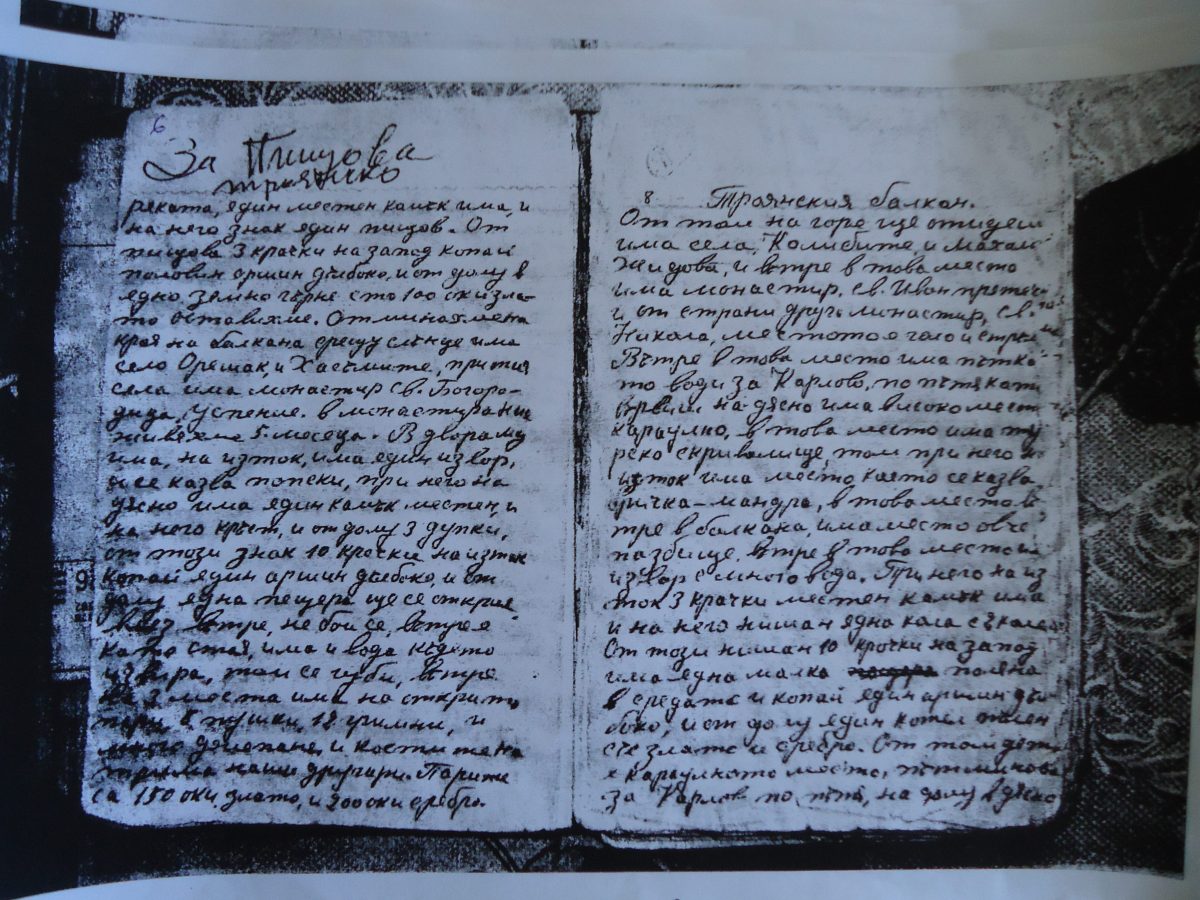 6
За Пищова
троянско
реката, един местен камък има, и
на него знак един пищов. От
пищова 3 крачки на запад копай
половин аршин дълбоко, и от долу в
едно земно гърне сто 100 оки зла-
то оставихме. От
края на балкана срещу слънце има
село Орешак и Хасъмите, при тия
села има монастир св. Богоро-
дица, Успение. в монастира ние
живяхме 5 месеца. В двора му
има, на изток, има един извор,
и се казва попски, при него на
дясно има един камък местен, и
на него кръст, и от долу 3 дупки,
от този знак 10 крачки на изток
копай един аршин дълбоко, и от
долу една пещера ще се открие
влез вътре, не бой се, вътре е
като стая, има и вода където
извира, там се губи, вътре
на 3 места има на открито
пари, 8 пушки, 12 гримни, и
много джепане, и костите на
трима наши другари. Парите
са 150 оки злато, и 200 оки сребро.
8 Троянския балкан.
От там на горе ще отидем
има села, Колибите и Махал
Жидова, и вътре в това место
има монастир, св. Иван претеча
и от страни друг монастир, св.
Никола, местото е голо и стръм
Вътре в това место има пътка
то води за Карлово, по пътя като
вървиш на дясно има високо мест
караулно, в това место има ту
рско скривалище, там при него на
изток има место което се казва
мандра, в това место въ
тре в балкана има место овче
пазбище, вътре в това место и
извор с много вода. При него на из
ток 3 крачки местен камък има
и на него нишан една кала с
От този нишан 10 крочки на запад
има една малка поляна
в средата и копай един аршин дъл
боко, и от долу един котел пълен
със злато и сребро. От там дето
е караулното место, пътя минава
за Карлов по пътя, на долу в дясно